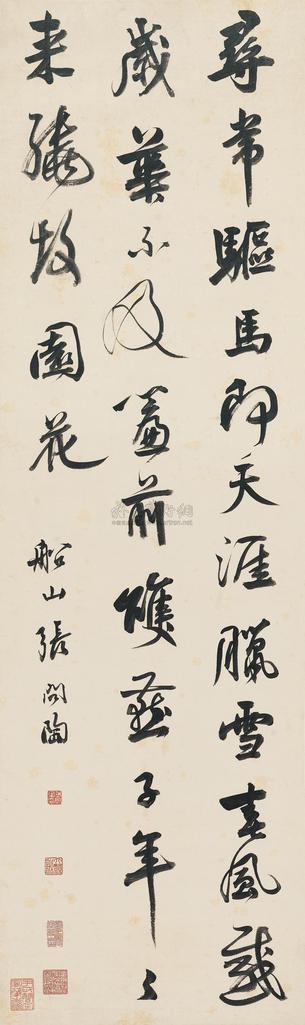 尋常驅馬即天涯臘雪春風感
歲華不及簾前雙燕子年〻
來繞故園花
船山張問陶